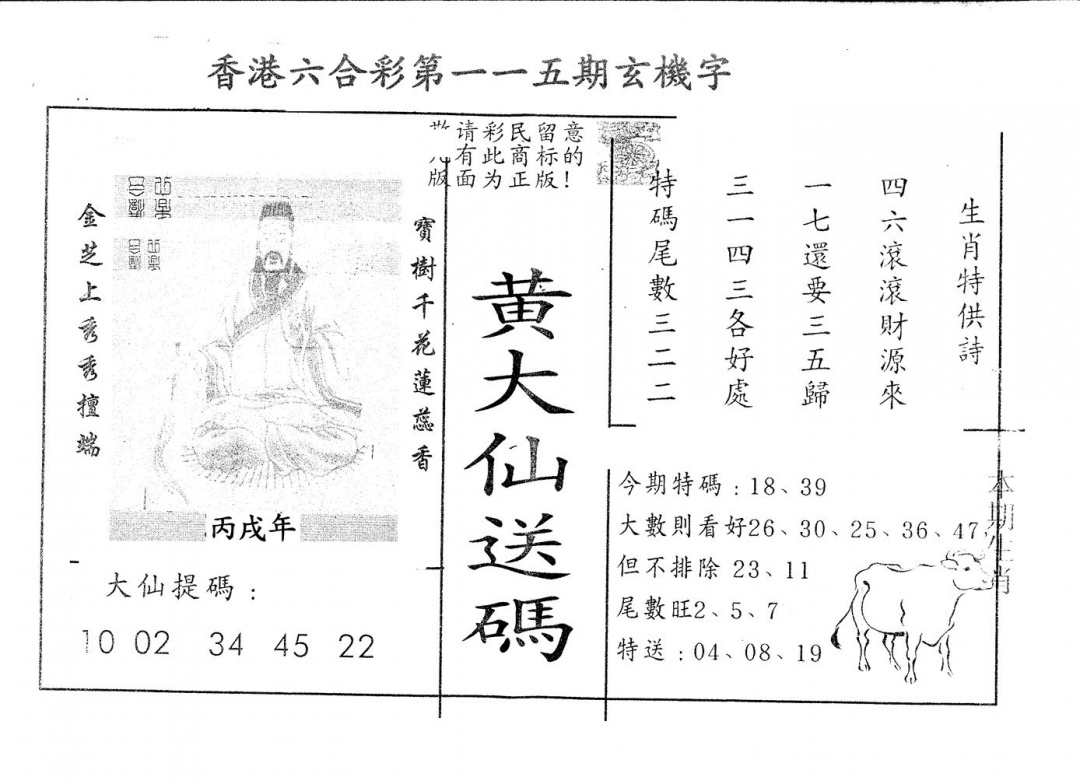 香港六合彩第一一五期玄機字
请彩民留意
有此商标的
版面为正版!
金芝上秀秀擅端
寶樹千花蓮蕊香
丙戌年
大仙提碼：
10 02 34 45 22
黄大仙送碼
生肖特供詩
四六滾滾財源來
一七還要三五歸
三一四三各好處
特碼尾數三二二
今期特碼：18、39
大數則看好26、30、25、36、47,
但不排除 23、11
尾數旺2、5、7
特送：04、08、19
本期生肖